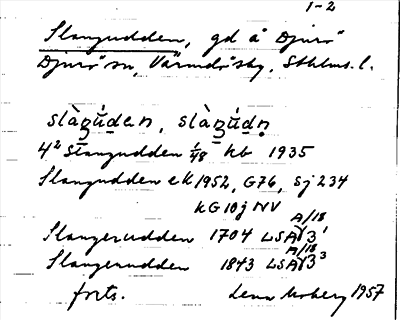 1-2
Slangudden, gd å Djurö
Djurö sn, Värmdö skg, Sthlms. l.
slàŋu̇den, slàŋu̇dn
4² Slangudden 1/48 kb 1935
Slangudden ek 1952, G76, Sj 234
KG 10j NV
Slangerudden 1704 LSA A/18 γ3¹
Slangenudden 1843 LSA A/18 γ3³
forts. Lena Moberg 1957